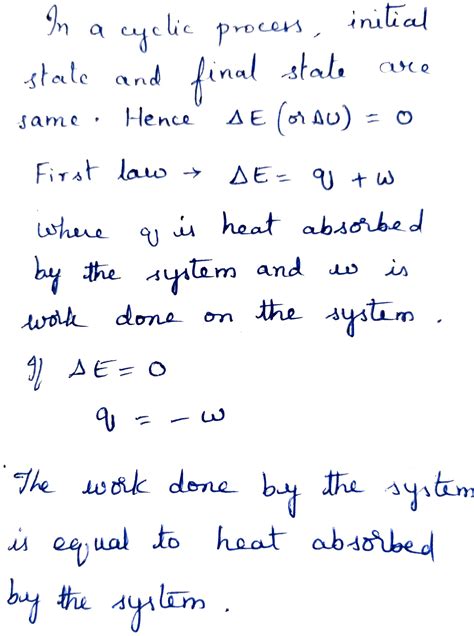 In a cyclic process, initial
state and final state are
same. Hence ΔE (or ΔU) = 0
First law → ΔE = q + w
where q is heat absorbed
by the system and w is
work done on the system.
If ΔE = 0
q = - w
The work done by the system
is equal to heat absorbed
by the system.